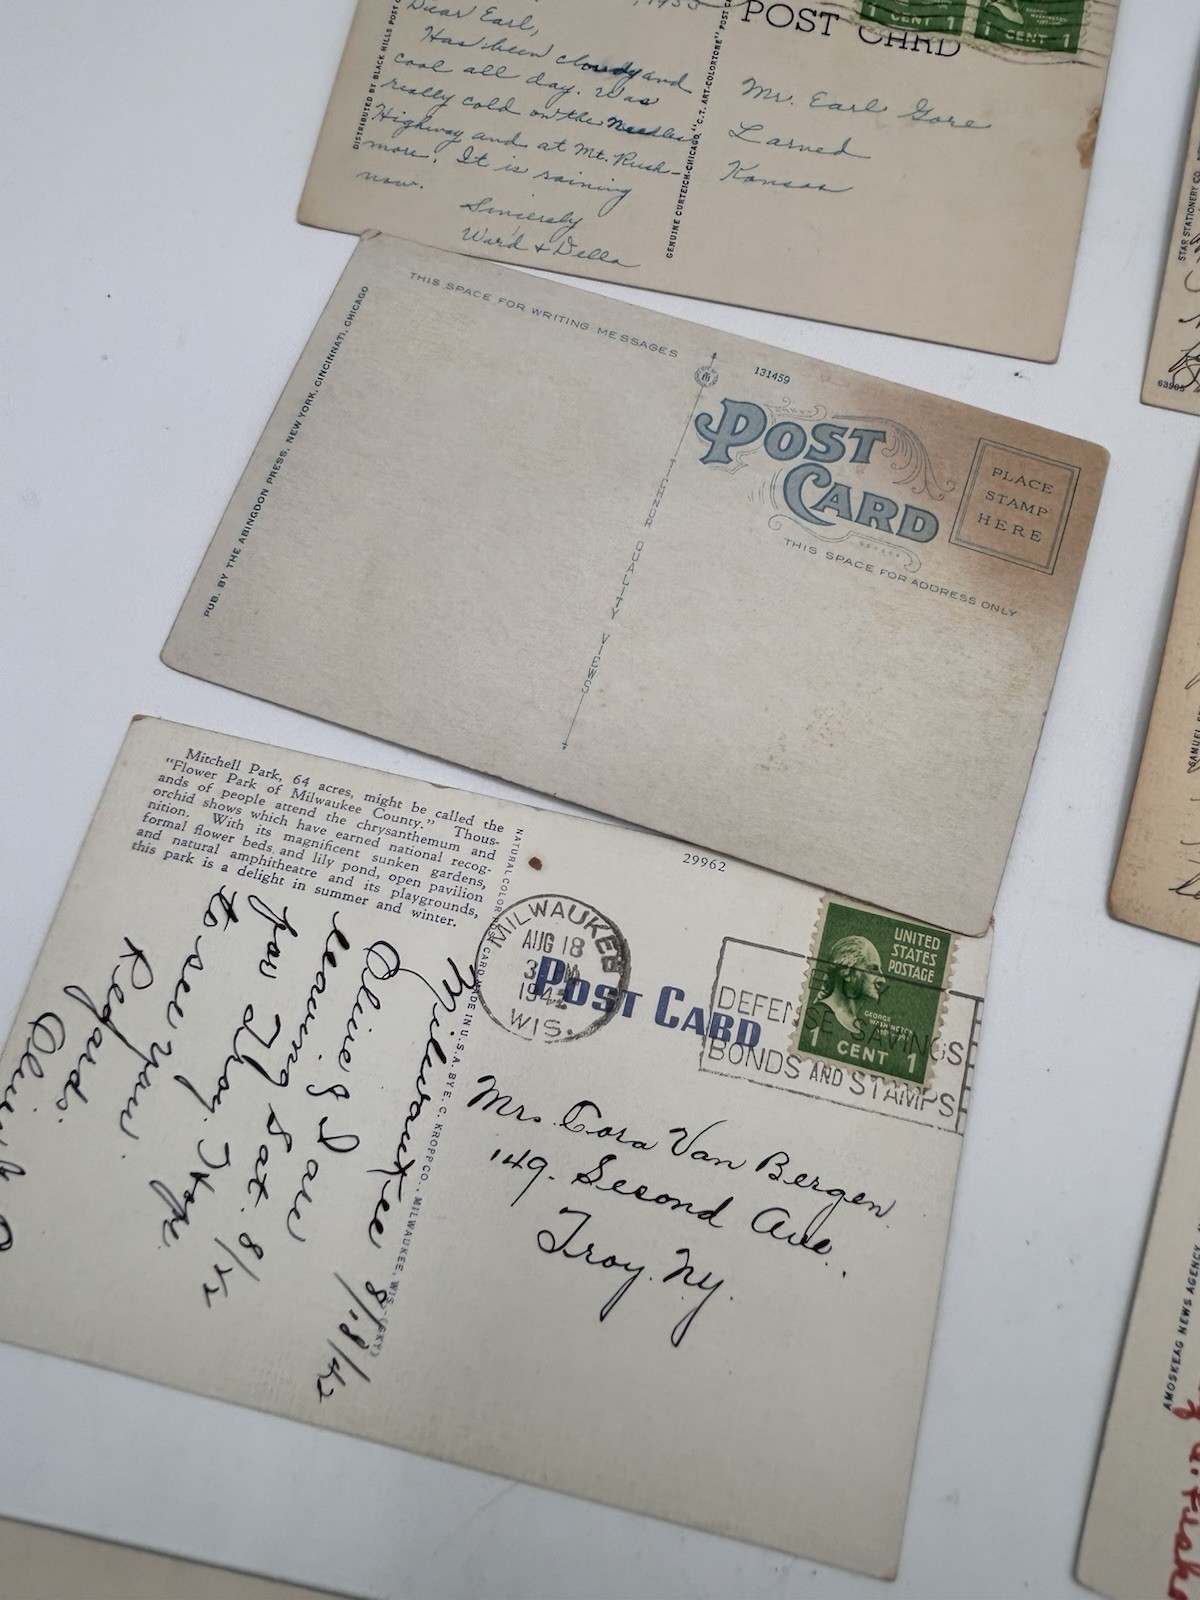 Dear Earl,
Has been cloudy and
cool all day. Was
really cold on the Needles
Highway and at Mt. Rush-
more. It is raining
now.
Sincerely
Ward & Della
DISTRIBUTED BY BLACK HILLS POST C
GENUINE CURTEICH-CHICAGO "C.T. ART-COLORTONE" POST CA
POST CARD
1 CENT 1
1 CENT 1
Mr. Earl Gore
Larned
Kansas
THIS SPACE FOR WRITING MESSAGES
PUB. BY THE ABINGDON PRESS, NEW YORK, CINCINNATI, CHICAGO
TICHNOR QUALITY VIEWS
131459
POST
CARD
PLACE
STAMP
HERE
THIS SPACE FOR ADDRESS ONLY
Mitchell Park, 64 acres, might be called the
"Flower Park of Milwaukee County." Thous-
ands of people attend the chrysanthemum and
orchid shows which have earned national recog-
nition. With its magnificent sunken gardens,
formal flower beds and lily pond, open pavilion
and natural amphitheatre and its playgrounds,
this park is a delight in summer and winter.
Milwaukee 8/18/42
leaving Sat. 8/22
for Troy. Hope
to see you.
Regards
NATURAL COLOR POST CARD MADE IN U.S.A. BY E. C. KROPP CO., MILWAUKEE, WIS.
29962
MILWAUKEE
AUG 18
WIS.
POST CARD
DEFENSE SAVINGS
BONDS AND STAMPS
UNITED
STATES
POSTAGE
GEORGE
WASHINGTON
1 CENT 1
Mrs. Cora Van Bergen
149. Second Ave.
Troy. N.Y.
STAR STATIONERY CO
63905
AMOSKEAG NEWS AGENCY